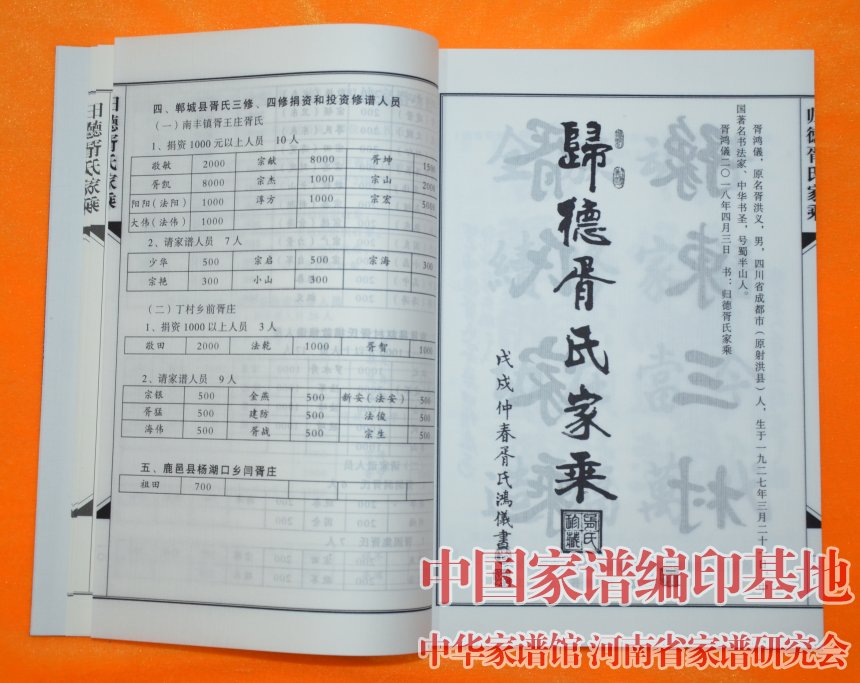 归德胥氏家乘
四、郸城县胥氏三修、四修捐资和投资修谱人员
（一）南丰镇胥王庄胥氏
1、捐资1000元以上人员 10人
敬敏 2000 宗献 8000 胥坤 1500
胥凯 8000 宗杰 1000 宗山 2000
阳阳(法阳) 1000 淳方 1000 宗宏 5000
大伟(法伟) 1000
2、请家谱人员 7人
少华 500 宗启 500 宗海 300
宗艳 300 小山 300
（二）丁村乡前胥庄
1、捐资1000以上人员 3人
敬田 2000 法乾 1000 胥智 1000
2、请家谱人员 9人
宗银 500 金燕 500 新安(法安) 500
胥猛 500 建防 500 法俊 500
海伟 500 胥战 500 宗生 500
五、鹿邑县杨湖口乡闫胥庄
祖田 700
归德胥氏家乘
胥鸿儀，原名胥洪义，男，四川省成都市（原射洪县）人，生于一九二七年三月二十
国著名书法家、中华书圣，号蜀半山人。
胥鸿儀二〇一八年四月三日 书：归德胥氏家乘
歸德胥氏家乘
戊戌仲春胥氏鴻儀書
胥氏珍藏
中国家谱编印基地
中华家谱馆 河南省家谱研究会